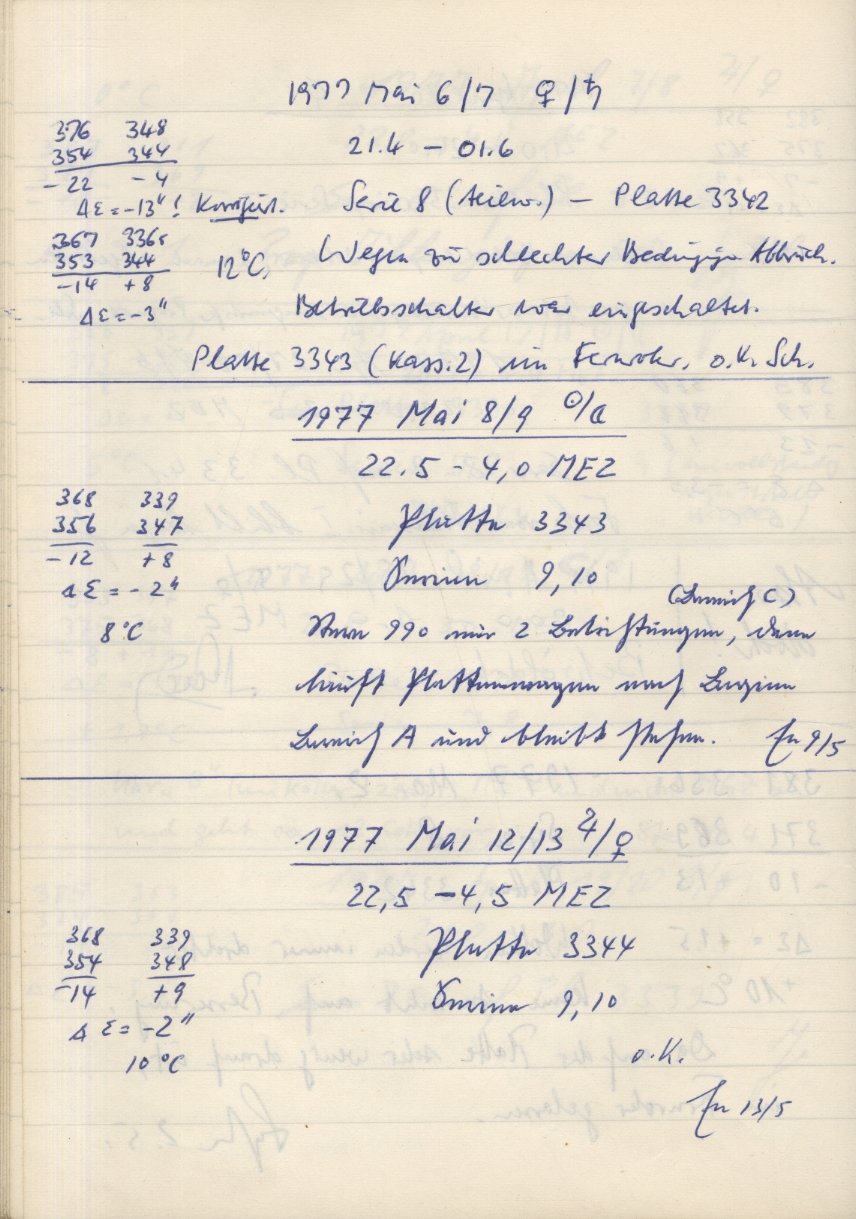 1977 Mai 6/7 ♀/♄
376 348
354 344
-22 -4
21.4 – 01.6
Δε = -13"! Korrigiert. Serie 8 (teilw.) – Platte 3342
367 336
353 344
-14 +8
12°C, Wegen zu schlechter Bedingungen Abbruch.
Δε = -3" Betriebsschalter war eingeschaltet.
Platte 3343 (Kass. 2) im Fernrohr. o.K. Sch.
1977 Mai 8/9 ☉/☾
22.5 – 4,0 MEZ
368 339
356 347
-12 +8
Platte 3343
Δε = -2" Serien 9,10
(Bereich C)
8°C Stern 990 nur 2 Belichtungen, dann
läuft Plattenwagen nach Beginn
Bereich A und bleibt stehen. 9/5
1977 Mai 12/13 ♃/♀
22,5 – 4,5 MEZ
368 339
354 348
-14 +9
Platte 3344
Serien 9,10
Δε = -2"
10°C
o.K.
13/5